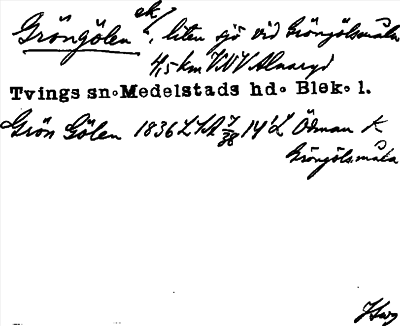 Gröngölen ek/, liten sjö vid Gröngölsmåla
4,5 km VNV Alnaryd
Tvings sn. Medelstads hd. Blek. l.
Grön Gölen 1836 LSA 14 L Ödman K
Gröngölsmåla